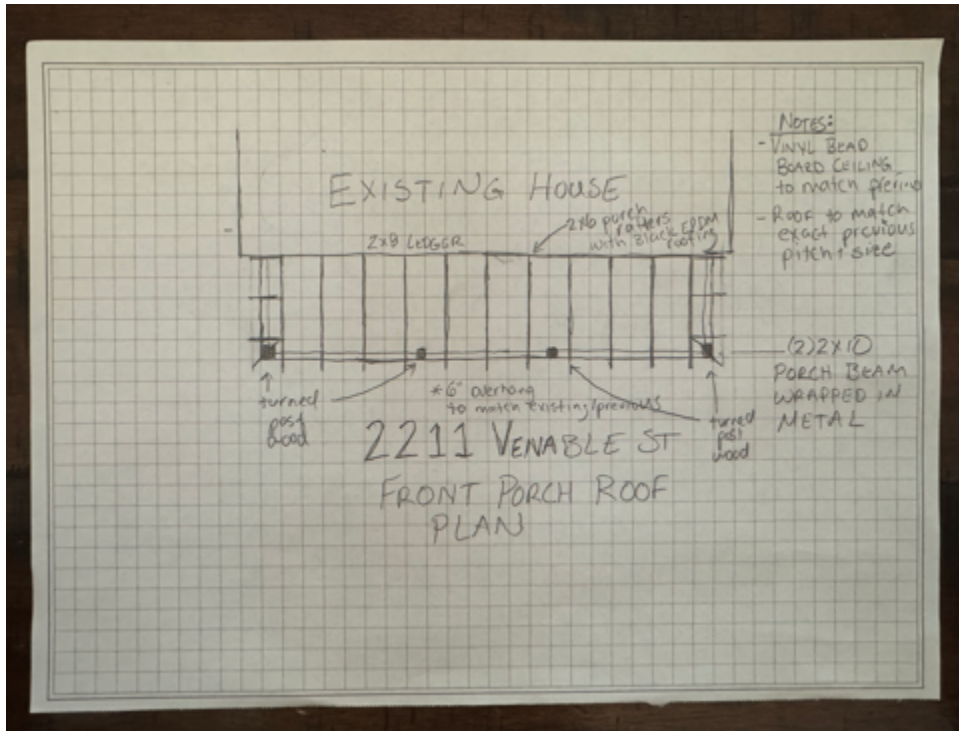 NOTES:
- VINYL BEAD
BOARD CEILING
to match
- ROOF to match
exact previous
pitch + size
EXISTING HOUSE
2x6 porch
rafters
with Black EPDM
roofing
2x8 LEDGER
(2) 2x10
PORCH BEAM
WRAPPED IN
METAL
turned
post
wood
*6" overhang
to match existing/previous
turned
post
wood
2211 VENABLE ST
FRONT PORCH ROOF
PLAN